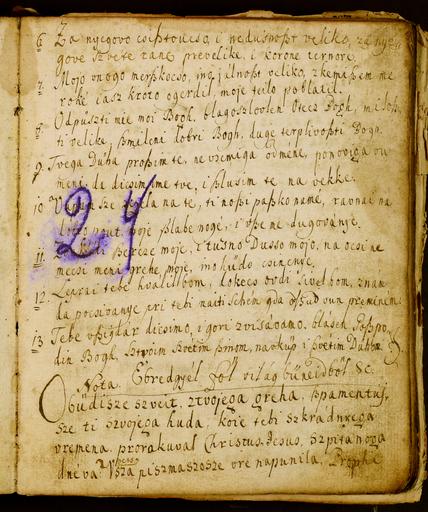 6. Za nyegovo csisztoucso, i nedusnoszt veliko, za nye-
gove szvete rane prevelike, i korone ternove.
7. Mojo vnogo merszkocso, jalnoszt veliko, zkemaszem me
roké i asz kroto ogerdil, moje teilo poblatil.
8. Odpuszti nie moi Bogh, blagoszlovlen Otecz Bogh, milosz-
ti velike, szmileni dobri Bogh, duge terplivoszti Bogh.
9. Tvega Duha proszim te, ne vzemiga odméne, ponoviga vu
meni, da dicsim ime tve, i szlusim te na vekke.
10. sze na te, ti noszi paszko name, ravnai na
pout moje szlabe nogé, i vsze ne dugoványe.
11. Bercze moje, i tusno Dusso mojo, na ocsi ne
mecsi meni grehe moje, mo hudo csinenye.
12. tebe hvalil bom, dokecs ovdi sivel bom, znam
da pocsivanye pri tebi naiti schem gda oszud vun preminem.
13 Tebe vszigdár dicsimo, i gori zviszávamo, blásen Goszpo-
din Bogh, sztvoim Szvétim Szinom, navküp i szvetim Duhom.
Nota. Ebredgyél föl világ büneidböl &c.
Obüdisze szveit, ztvojega greha, szpamentuj-
sze ti szvojega huda, koje tebi szkradnyega
vremena, prorakuval Christus Jesus, szpitanoga
dnéva. Vsza piszmaszosze vre napunila, Prophé
24